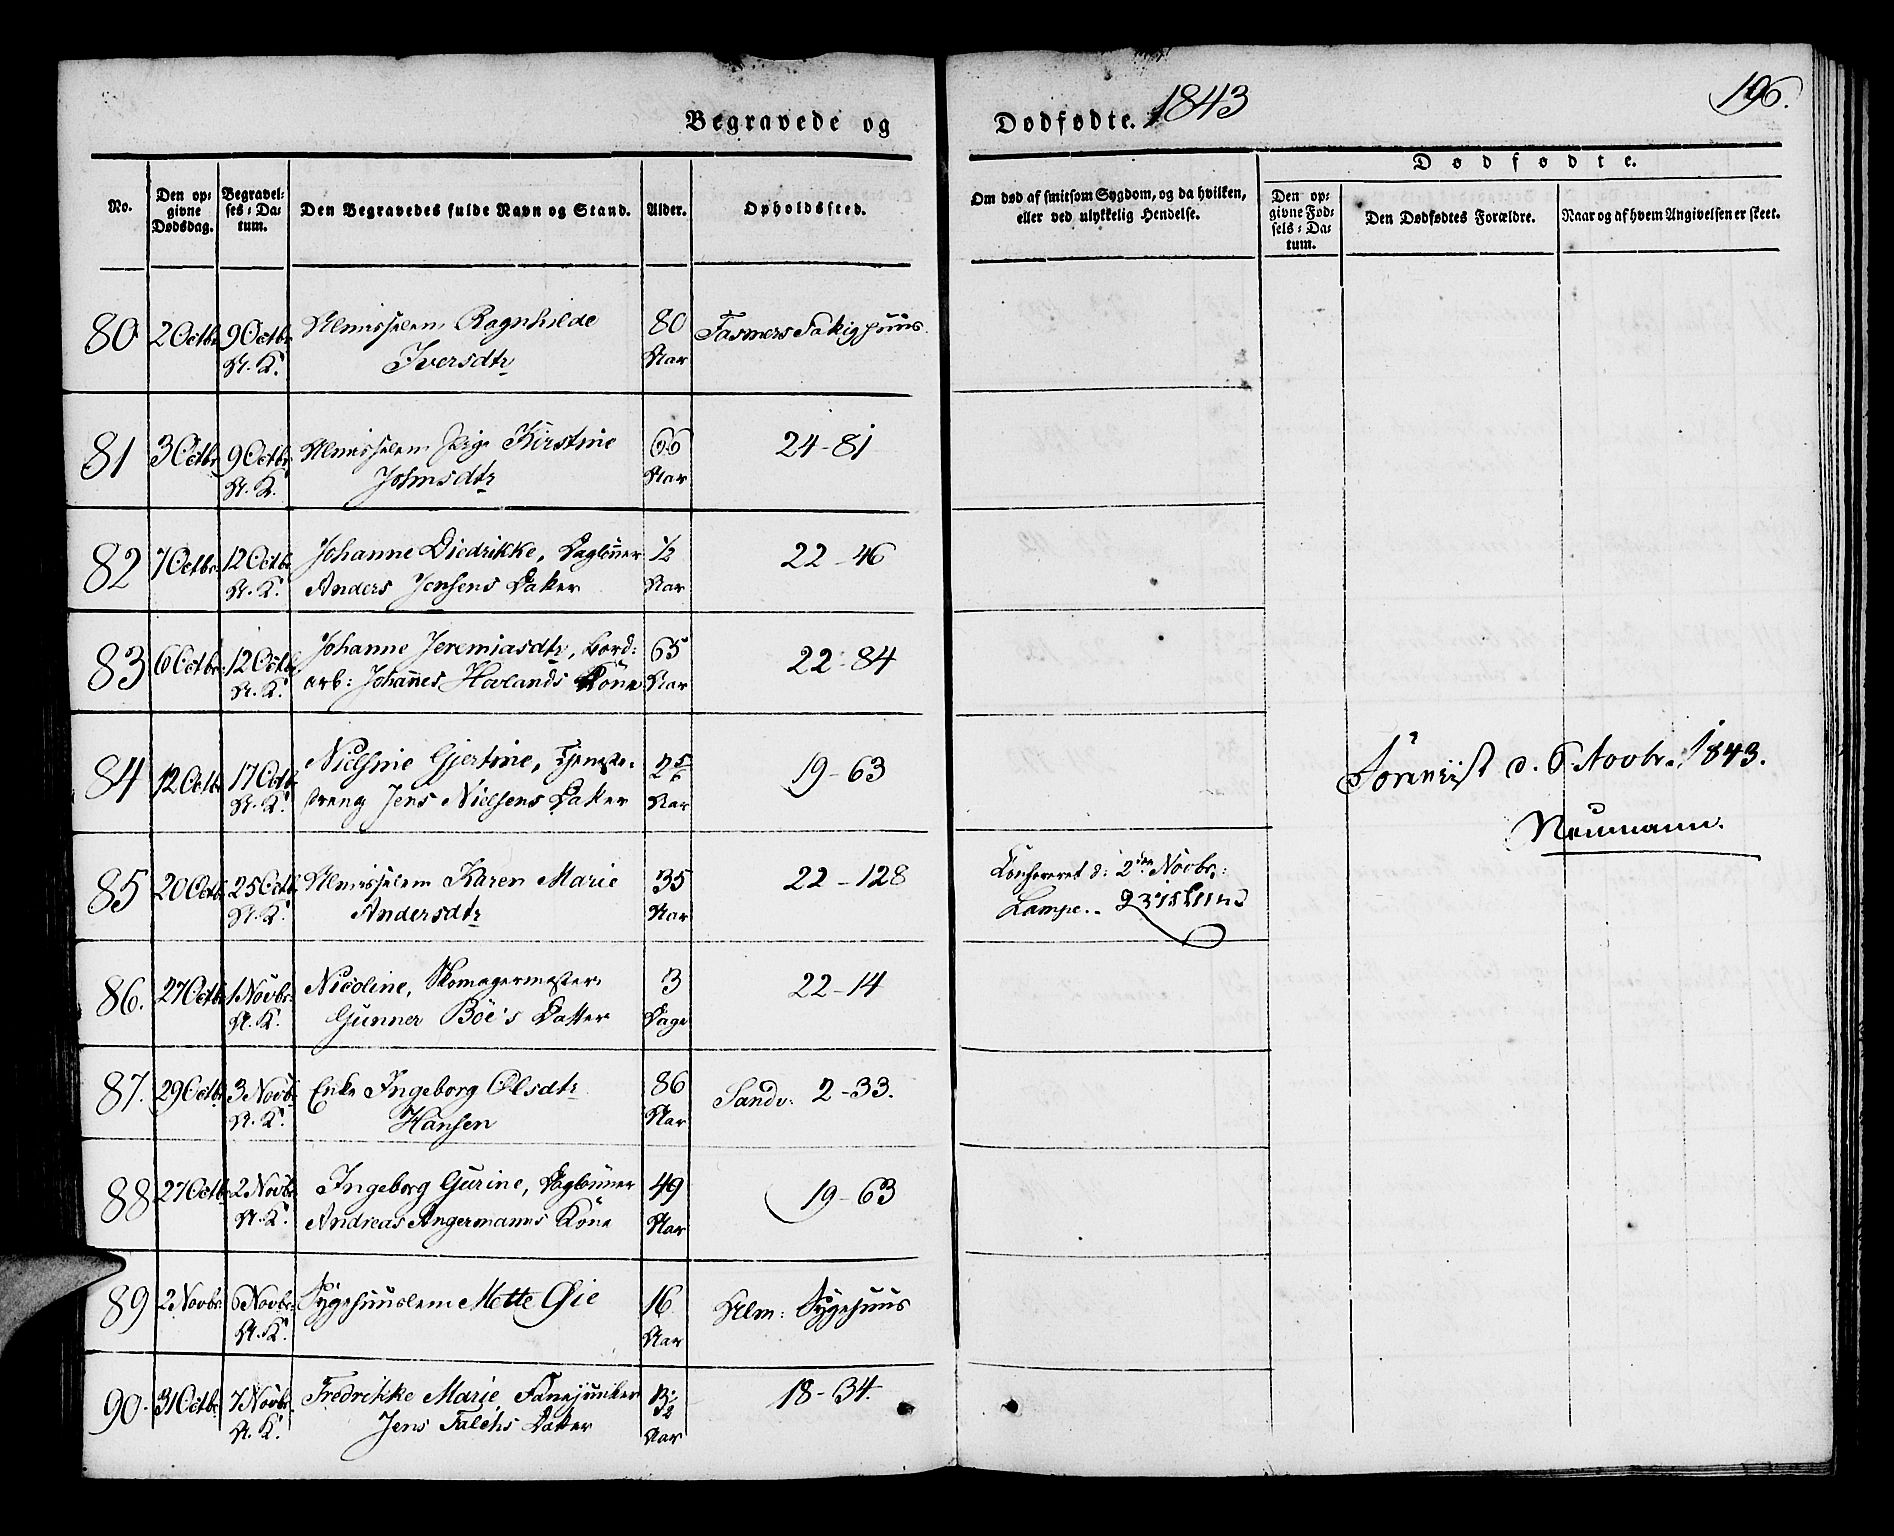 Begravede og
Dødfødte. 1843
196.
No.
Den opgivne Dødsdag.
Begravelses-Datum.
Den Begravedes fulde Navn og Stand.
Alder.
Opholdssted.
Om død af smitsom Sygdom, og da hvilken, eller ved ulykkelig Hendelse.
Dødfødte.
Den opgivne Fødsels-Datum.
Den Dødfødtes Forældre.
Naar og af hvem Angivelsen er skeet.
80 2 Octbr. 9 Octbr. Almisselem Ragnhilde 80
N. K. Iversdtr Aar
81 3 Octbr. 9 Octbr. Almisselem Pige Kirstine 66 24-81
N. K. Johnsdtr Aar
82 7 Octbr. 12 Octbr. Johanne Diedrikke, Daglønner ½ 22-46
N. K. Anders Jensens Datter Aar
83 6 Octbr. 12 Octbr. Johanne Jeremiasdtr, Bord: 65 22-84
N. K. arb: Johannes Hovlands Kone Aar
84 12 Octbr. 17 Octbr. Nielsine Gjertine, Tjeneste- 19-63
N. K. dreng Jens Nielsens Datter Aar
85 20 Octbr. 25 Octbr. Almisselem Karen Marie 35 22-128
N. K. Andersdtr Aar
Confereret d: 2den Novbr:
Lampe..
86. 27 Octbr. 1 Novbr. Nicoline, Skomagermester 3 22-14
N. K. Gunner Böe's Datter Dage
87. 29 Octbr. 3 Novbr. Enke Ingeborg Olsdtr 86 Sandv: 2-33.
N. K. Hansen Aar
88 27 Octbr. 2 Novbr. Ingeborg Gurine, Daglønner 49 19-63
N. K. Andreas Angermanns Kone Aar
89 2 Novbr. 6 Novbr. Sygehuuslem Mette Øie 16 Alm: Sygehuus
N. K. Aar
90. 31 Octbr. 7 Novbr. Fredrikke Marie, Fanejunker 18-34.
N. K. Jens Falchs Datter Aar
Foreviist d. 6 Novbr. 1843.
Neumann.